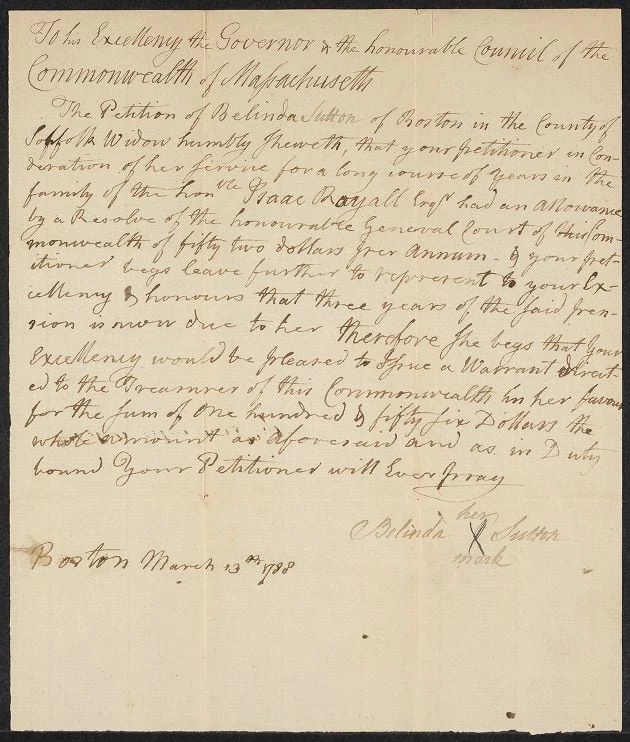 To his Excellency the Governor & the honourable Council of the
Commonwealth of Massachusetts
The Petition of Belinda Sutton of Boston in the County of
Suffolk Widow humbly sheweth, that your petitioner in Con-
sideration of her service for a long course of years in the
family of the honble Isaac Royall Esqr had an Allowance
by a Resolve of the honourable General Court of this Com-
monwealth of fifty two dollars per Annum - & your pet-
itioner begs leave further to represent to your Ex-
cellency & honours that three years of the said pen-
sion is now due to her therefore she begs that your
Excellency would be pleased to Issue a Warrant direct-
ed to the Treasurer of this Commonwealth in her favour
for the sum of one hundred & fifty six Dollars the
whole amount as aforesaid and as in Duty
bound Your Petitioner will Ever pray
her
Belinda X Sutton
mark
Boston March 13th 1788